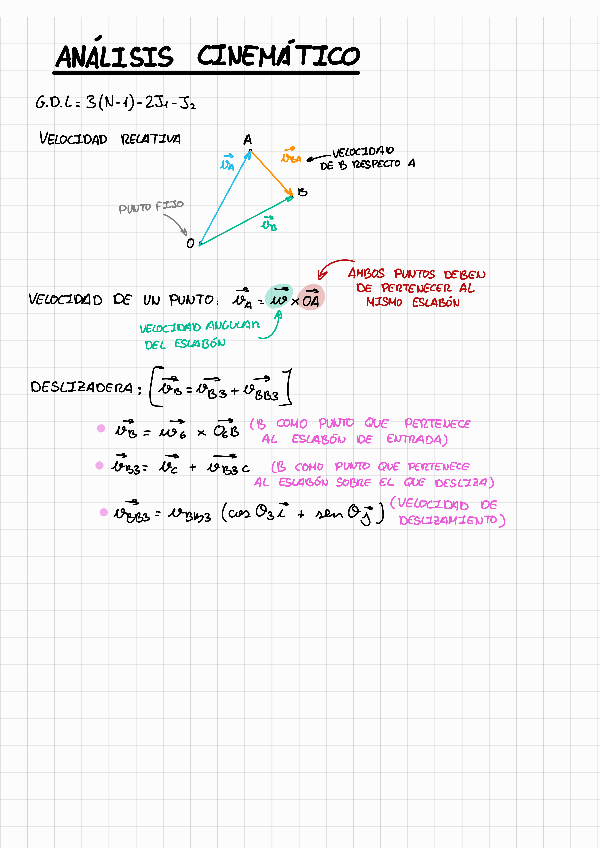 ANÁLISIS CINEMÁTICO
G.D.L = 3(N-1) - 2J₁ - J₂
VELOCIDAD RELATIVA
A
v⃗A
v⃗BA
VELOCIDAD
DE B RESPECTO A
B
PUNTO FIJO
O
v⃗B
AMBOS PUNTOS DEBEN
DE PERTENECER AL
MISMO ESLABÓN
VELOCIDAD DE UN PUNTO: v⃗A = w⃗ × OA⃗
VELOCIDAD ANGULAR
DEL ESLABÓN
DESLIZADERA: [v⃗B = v⃗B3 + v⃗BB3]
v⃗B = w⃗6 × O6B⃗ (B COMO PUNTO QUE PERTENECE
AL ESLABÓN DE ENTRADA)
v⃗B3 = v⃗C + v⃗B3C (B COMO PUNTO QUE PERTENECE
AL ESLABÓN SOBRE EL QUE DESLIZA)
v⃗BB3 = vBB3 (cos θ3 i⃗ + sen θ j⃗) (VELOCIDAD DE
DESLIZAMIENTO)